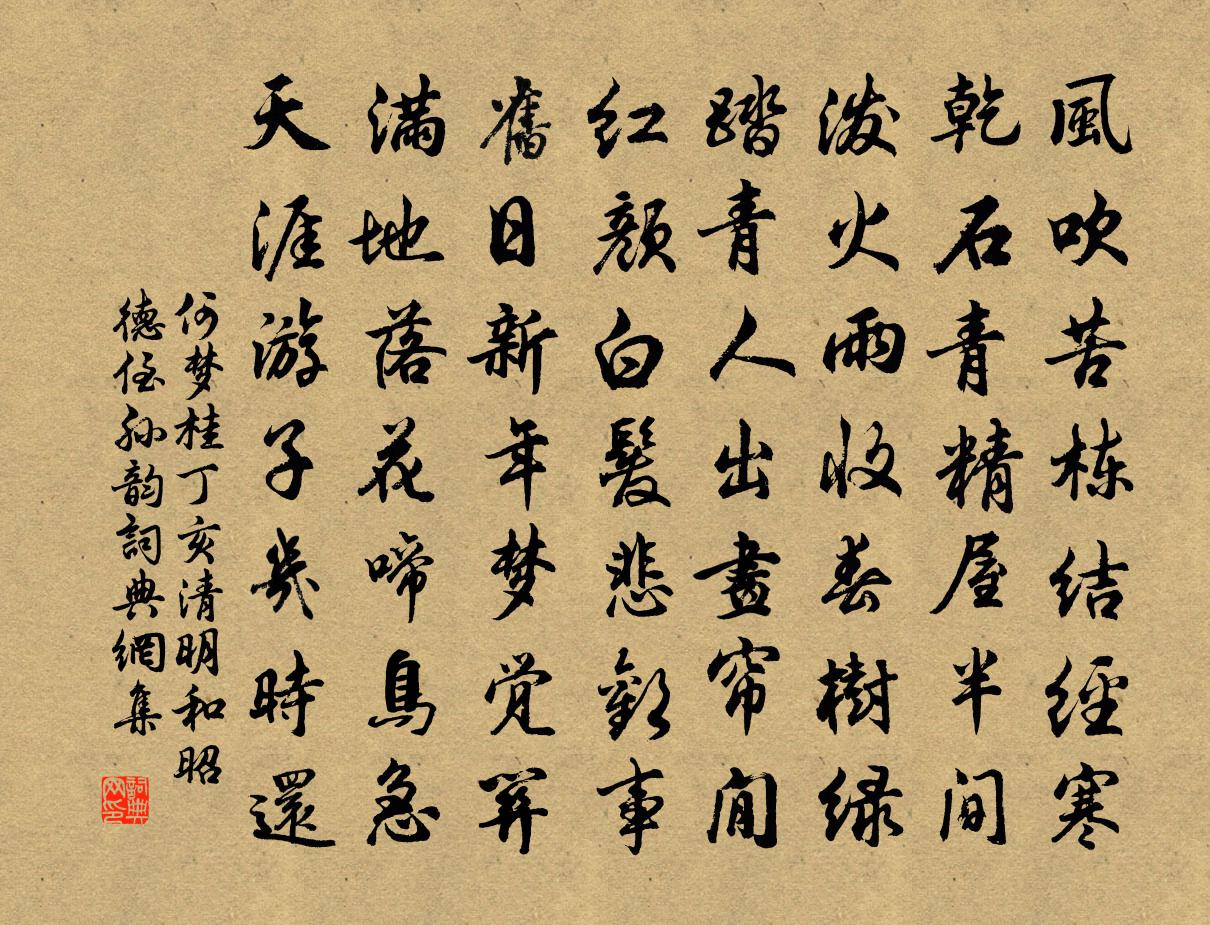 風吹苦楝結經寒
乾石青精屋半間
潑火雨收春樹綠
踏青人出晝帘閒
紅顏白髮悲歡事
舊日新年梦覺關
滿地落花啼鳥急
天涯游子幾時還
何梦桂丁亥清明和昭
德侄孙韵詞典網集
詞典网印